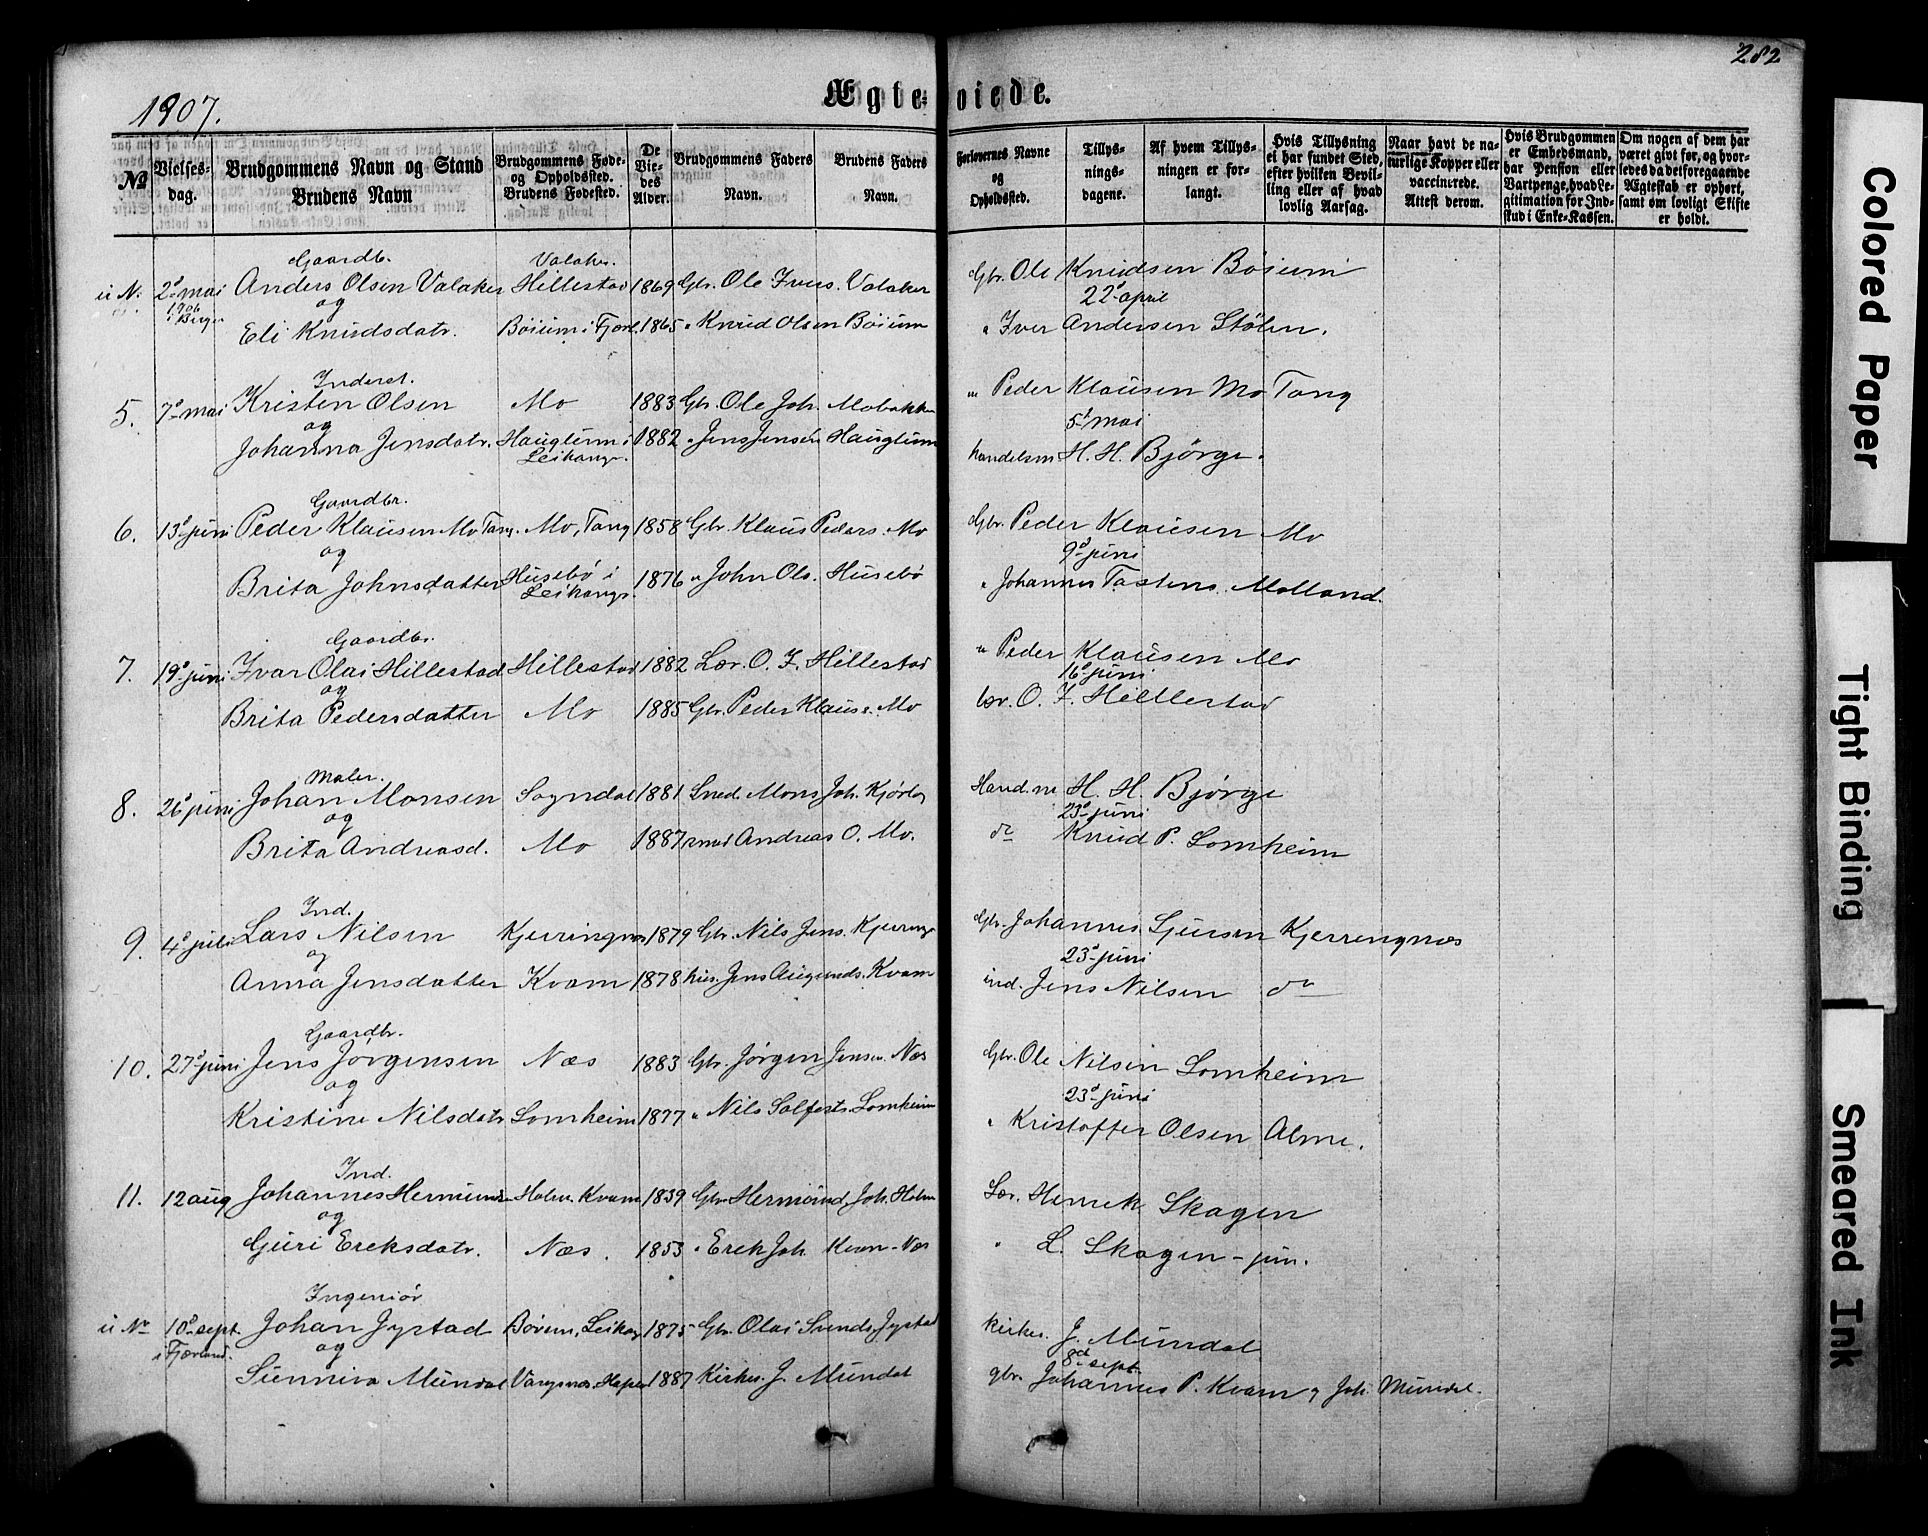 282
1907.
Ægteviede.
№
Vielses-dag.
Brudgommens Navn og Stand
Brudens Navn
Brudgommens Føde- og Opholdssted.
Brudens Fødested.
De Vie-des Alder.
Brudgommens Faders Navn.
Brudens Faders Navn.
Forlovernes Navne og Opholdssted.
Tillys-nings-dagene.
Af hvem Tillys-ningen er for-langt.
Hvis Tillysning ei har fundet Sted, efter hvilken Bevil-ling eller af hvad lovlig Aarsag.
Naar havt de na-turlige Kopper eller vaccinerede. Attest derom.
Hvis Brudgommen er Embedsmand, har Pension eller Vartpenge, hvad Le-gitimation for Ind-skud i Enke-Kassen.
Om nogen af dem har været gift før, og hvor-ledes da det foregaaende Ægteskab er ophørt, samt om lovligt Skifte er holdt.
Gaardbr. Valaker.
u N. 2d mai Anders Olsen Valaker Hillestad 1869 Gbr. Ole Ivers. Valaker Gbr. Ole Knudsen Böium
1906 og 22d april
Eli Knudsdatr. Böium i Fjærl. 1865 " Knud Olsen Böium " Iver Andersen Stölen.
Inderst.
5. 7d mai Kristen Olsen Mo 1883 Gbr. Ole Joh. Mobakken " Peder Klausen Mo Tang
og 5t mai
Johanna Jensdatr. Hauglum i Leikang. 1882 " Jens Jensen Hauglum handelsm H. H. Björge.
Gaardbr.
6. 13d juni Peder Klausen Mo Tang. Mo, Tang 1858 Gbr. Klaus Peders. Mo Gbr. Peder Klausen Mo
og 9d juni
Brita Johnsdatter Husebö i Leikang. 1876 " John Ols. Husebö " Johannes Tostens. Molland.
Gaardbr.
7. 19d juni Ivar Olai Hillestad Hillestad 1882 Lær. O. I. Hillestad " Peder Klausen Mo
og 16d juni
Brita Pedersdatter Mo 1885 Gbr. Peder Klaus s. Mo lær. O. I. Hillestad
Maler.
8. 26d juni Johan Monsen Sogndal 1881 Smed. Mons Joh. Hand.m H. H. Björge
og 23d juni
Brita Andreasd. Mo 1887 smed Andreas O. Mo. do Knud P. Lomheim
Ind.
9. 4d juli Lars Nilsen Kjerringnes 1879 Gbr. Nils Jens. Kjerringn Gbr. Johannes Sjursen Kjerringnæs
og 23d juni
Anna Jensdatter Kvam 1878 hus. Jens Augunds. Kvam ind. Jens Nilsen do
Gaardbr.
10. 27d juni Jens Jörgensen Næs 1883 Gbr. Jörgen Jensen Næs Gbr. Ole Nilsen Lomheim
og 23d juni
Kristine Nilsdatr Lomheim 1877 " Nils Solfests. Lomheim " Kristoffer Olsen Alme.
Ind.
11. 12 aug Johannes Hermunds. Holen. Kvam 1839 Gbr Hermund Joh. Holen Lær. Henrik Skagen
og
Guri Ereksdatr. Næs. 1853 " Erek Joh. Kvam - Næs " L. Skagen - jun.
Ingeniör
u No 10d sept. Johan Jystad Böium, Leikang 1875 Gbr. Olai Svends. Jystad kirkes. J. Mundal
i Fjærland. og 8d sept.
Sunniva Mundal Vangsnes, Hopen 1887 Kirkes. J. Mundal gbr. Johannes P. Kvam og Joh. Mundal.
Colored Paper
Tight Binding
Smeared Ink